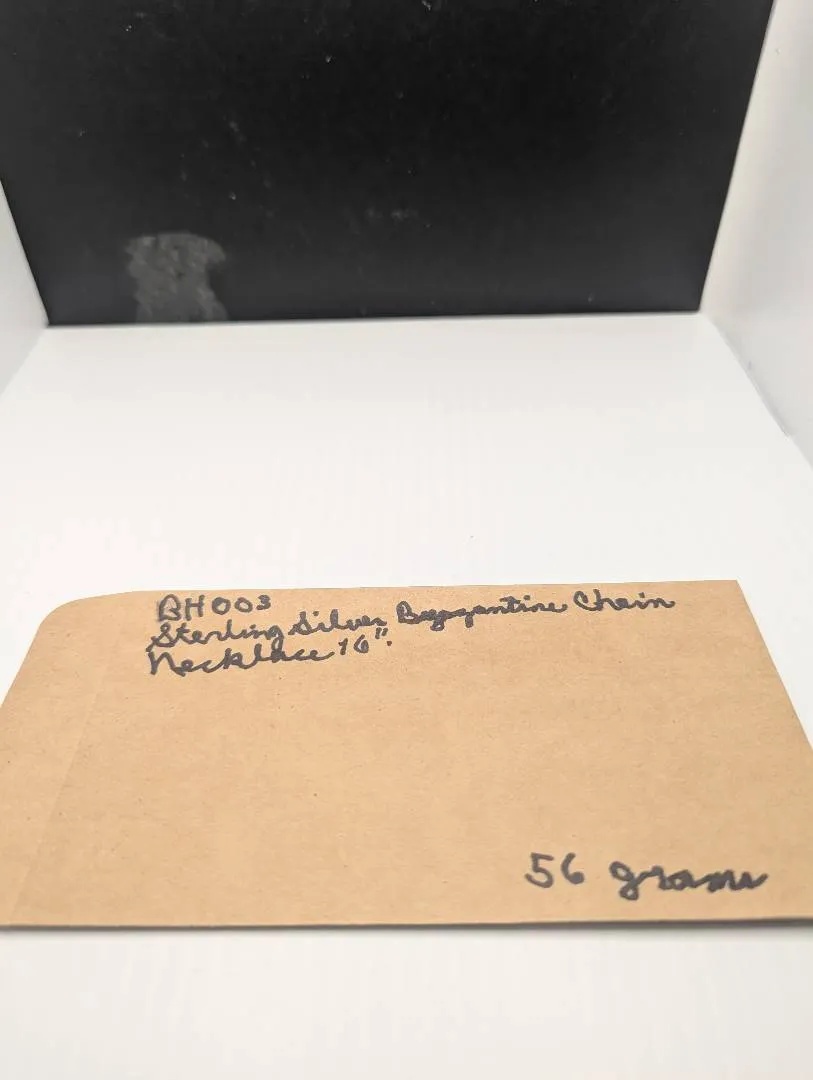 BH003
Sterling Silver Byzantine Chain
Necklace 16".
56 grams